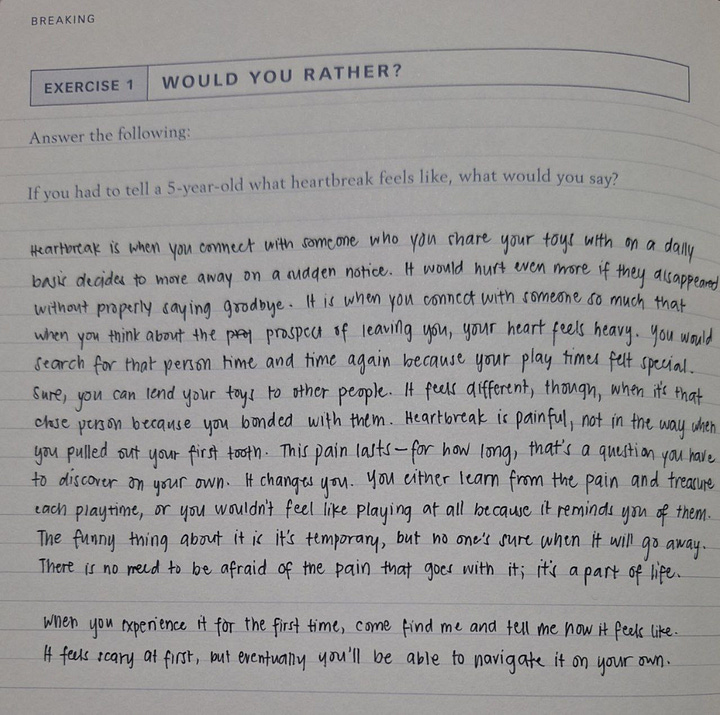 BREAKING
EXERCISE 1 WOULD YOU RATHER?
Answer the following:
If you had to tell a 5-year-old what heartbreak feels like, what would you say?
Heartbreak is when you connect with someone who you share your toys with on a daily
basis decides to move away on a sudden notice. It would hurt even more if they disappeared
without properly saying goodbye. It is when you connect with someone so much that
when you think about the prospect of leaving you, your heart feels heavy. You would
search for that person time and time again because your play times felt special.
Sure, you can lend your toys to other people. It feels different, though, when it's that
close person because you bonded with them. Heartbreak is painful, not in the way when
you pulled out your first tooth. This pain lasts—for how long, that's a question you have
to discover on your own. It changes you. You either learn from the pain and treasure
each playtime, or you wouldn't feel like playing at all because it reminds you of them.
The funny thing about it is it's temporary, but no one's sure when it will go away.
There is no need to be afraid of the pain that goes with it; it's a part of life.
When you experience it for the first time, come find me and tell me how it feels like.
It feels scary at first, but eventually you'll be able to navigate it on your own.